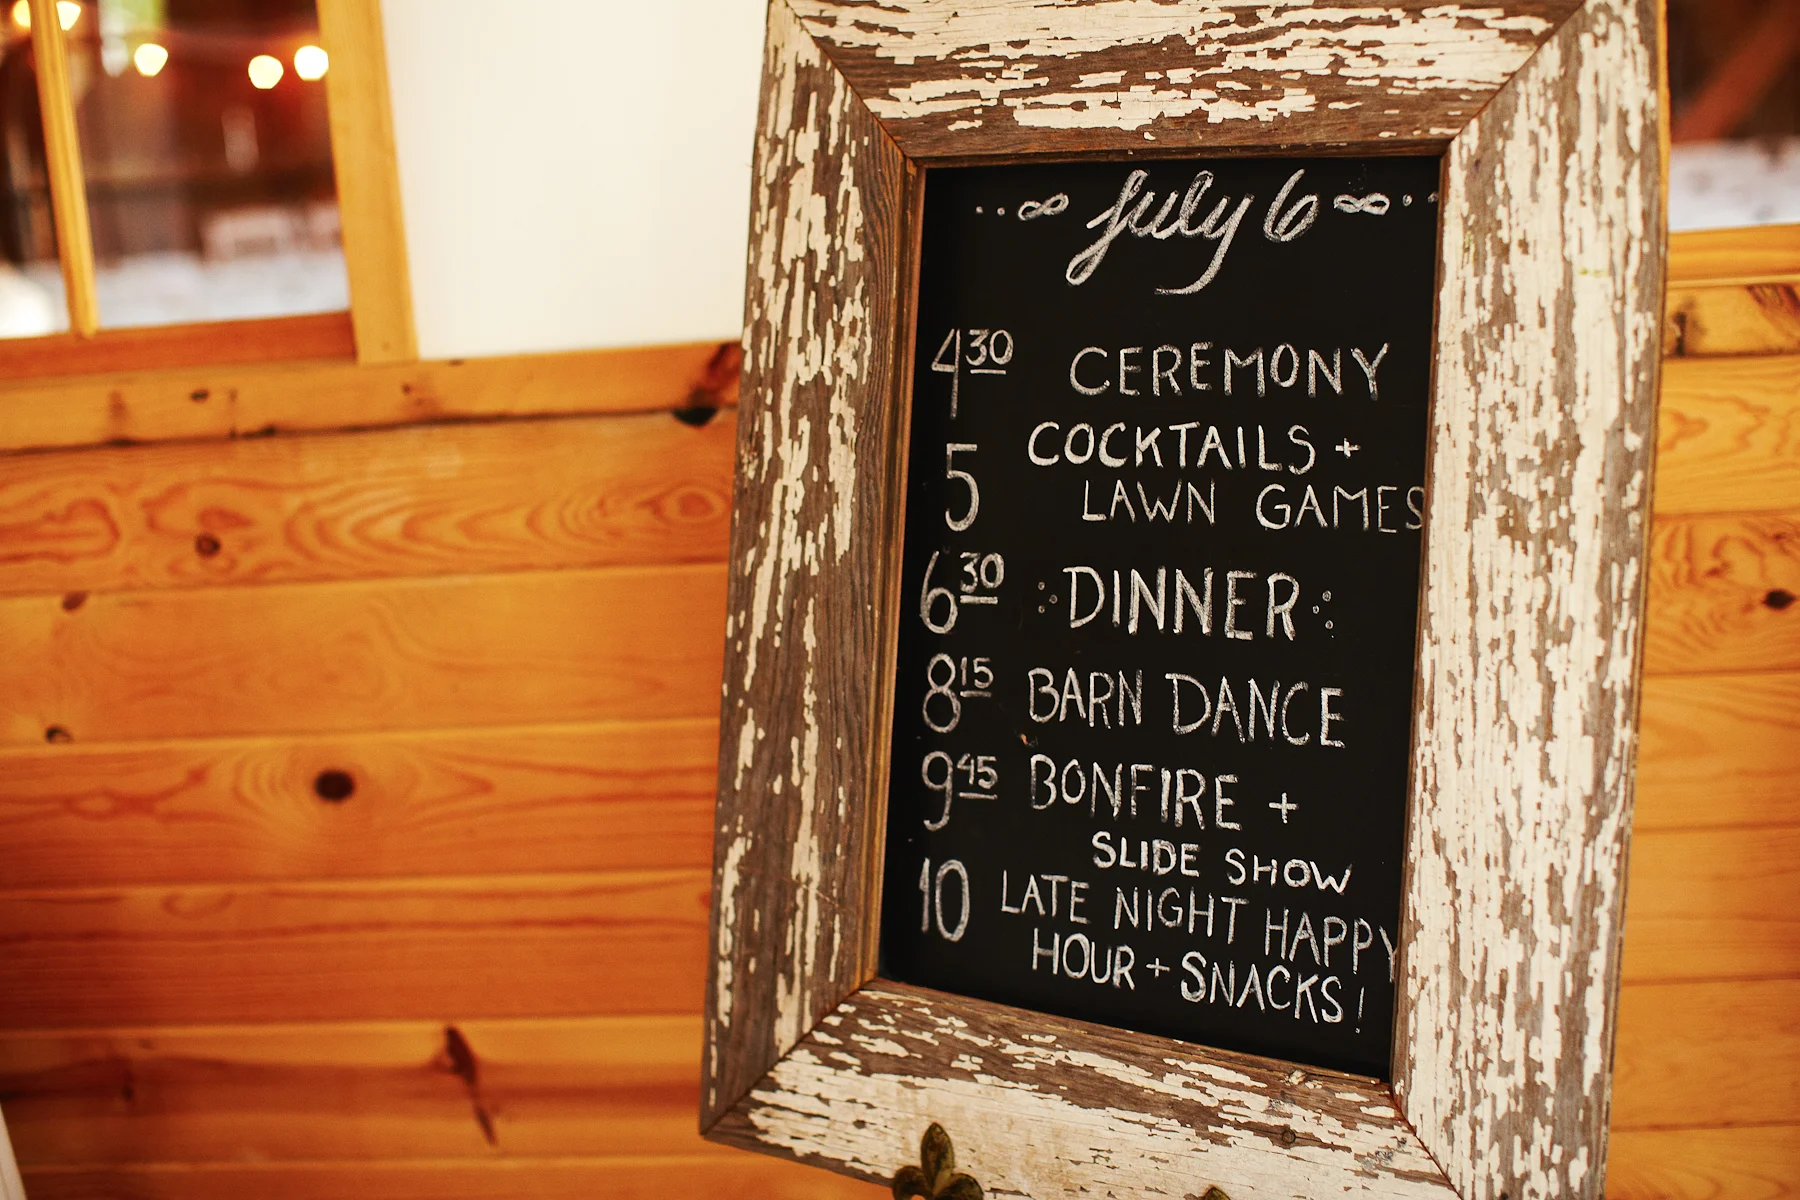 July 6
4 30 CEREMONY
5 COCKTAILS +
LAWN GAMES
6 30 DINNER
8 15 BARN DANCE
9 45 BONFIRE +
SLIDE SHOW
10 LATE NIGHT HAPPY
HOUR + SNACKS!